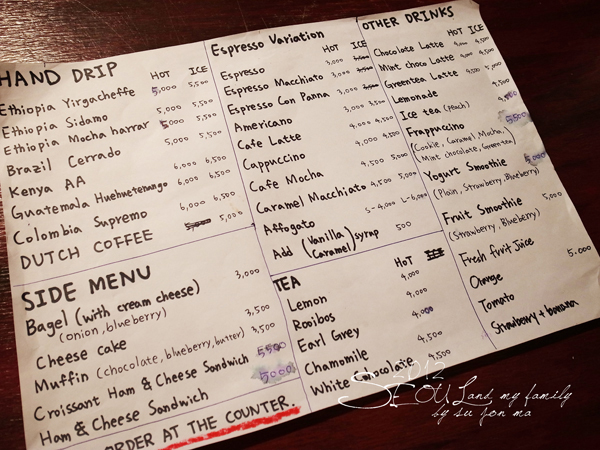 HAND DRIP HOT ICE
Ethiopia Yirgacheffe 5,000 5,500
Ethiopia Sidamo 5,000 5,500
Ethiopia Mocha harrar 5,000 5,500
Brazil Cerrado 5,000 5,500
Kenya AA 6,000 6,500
Guatemala Huehuetenango 6,000 6,500
Colombia Supremo 6,000 6,500
DUTCH COFFEE 5,000
SIDE MENU
Bagel (with cream cheese) 3,000
(onion, blueberry)
Cheese cake 3,500
Muffin (chocolate, blueberry, butter) 3,500
Croissant Ham & Cheese Sandwich 5500
Ham & Cheese Sandwich 5000
ORDER AT THE COUNTER.
Espresso Variation HOT ICE
Espresso 3,000
Espresso Macchiato 3,000
Espresso Con Panna 3,000
Americano 3,000 3,500
Cafe Latte 4,000 4,500
Cappuccino 4,000 4,500
Cafe Mocha
Caramel Macchiato 4,500 5,000
Affogato 4,500 5,000
Add (Vanilla Caramel) syrup 500
S-4,000 L-6,000
TEA HOT ICE
Lemon 4,000
Rooibos 4,000
Earl Grey 4,000
Chamomile 4,500
White chocolate 4,500
OTHER DRINKS HOT ICE
Chocolate Latte 4,000 4,500
Mint choco Latte 4,000 4,500
Greentea Latte 4,000 4,500
Lemonade 4,500
Ice tea (peach)
Frappuccino 5,500
(Cookie, Caramel, Mocha,
Mint chocolate, Green tea)
Yogurt Smoothie 5,000
(Plain, Strawberry, Blueberry)
Fruit Smoothie 5,000
(Strawberry, Blueberry)
Fresh fruit Juice 5,000
Orange
Tomato
Strawberry + banana
2012
SEOUL and my family
by su jon ma